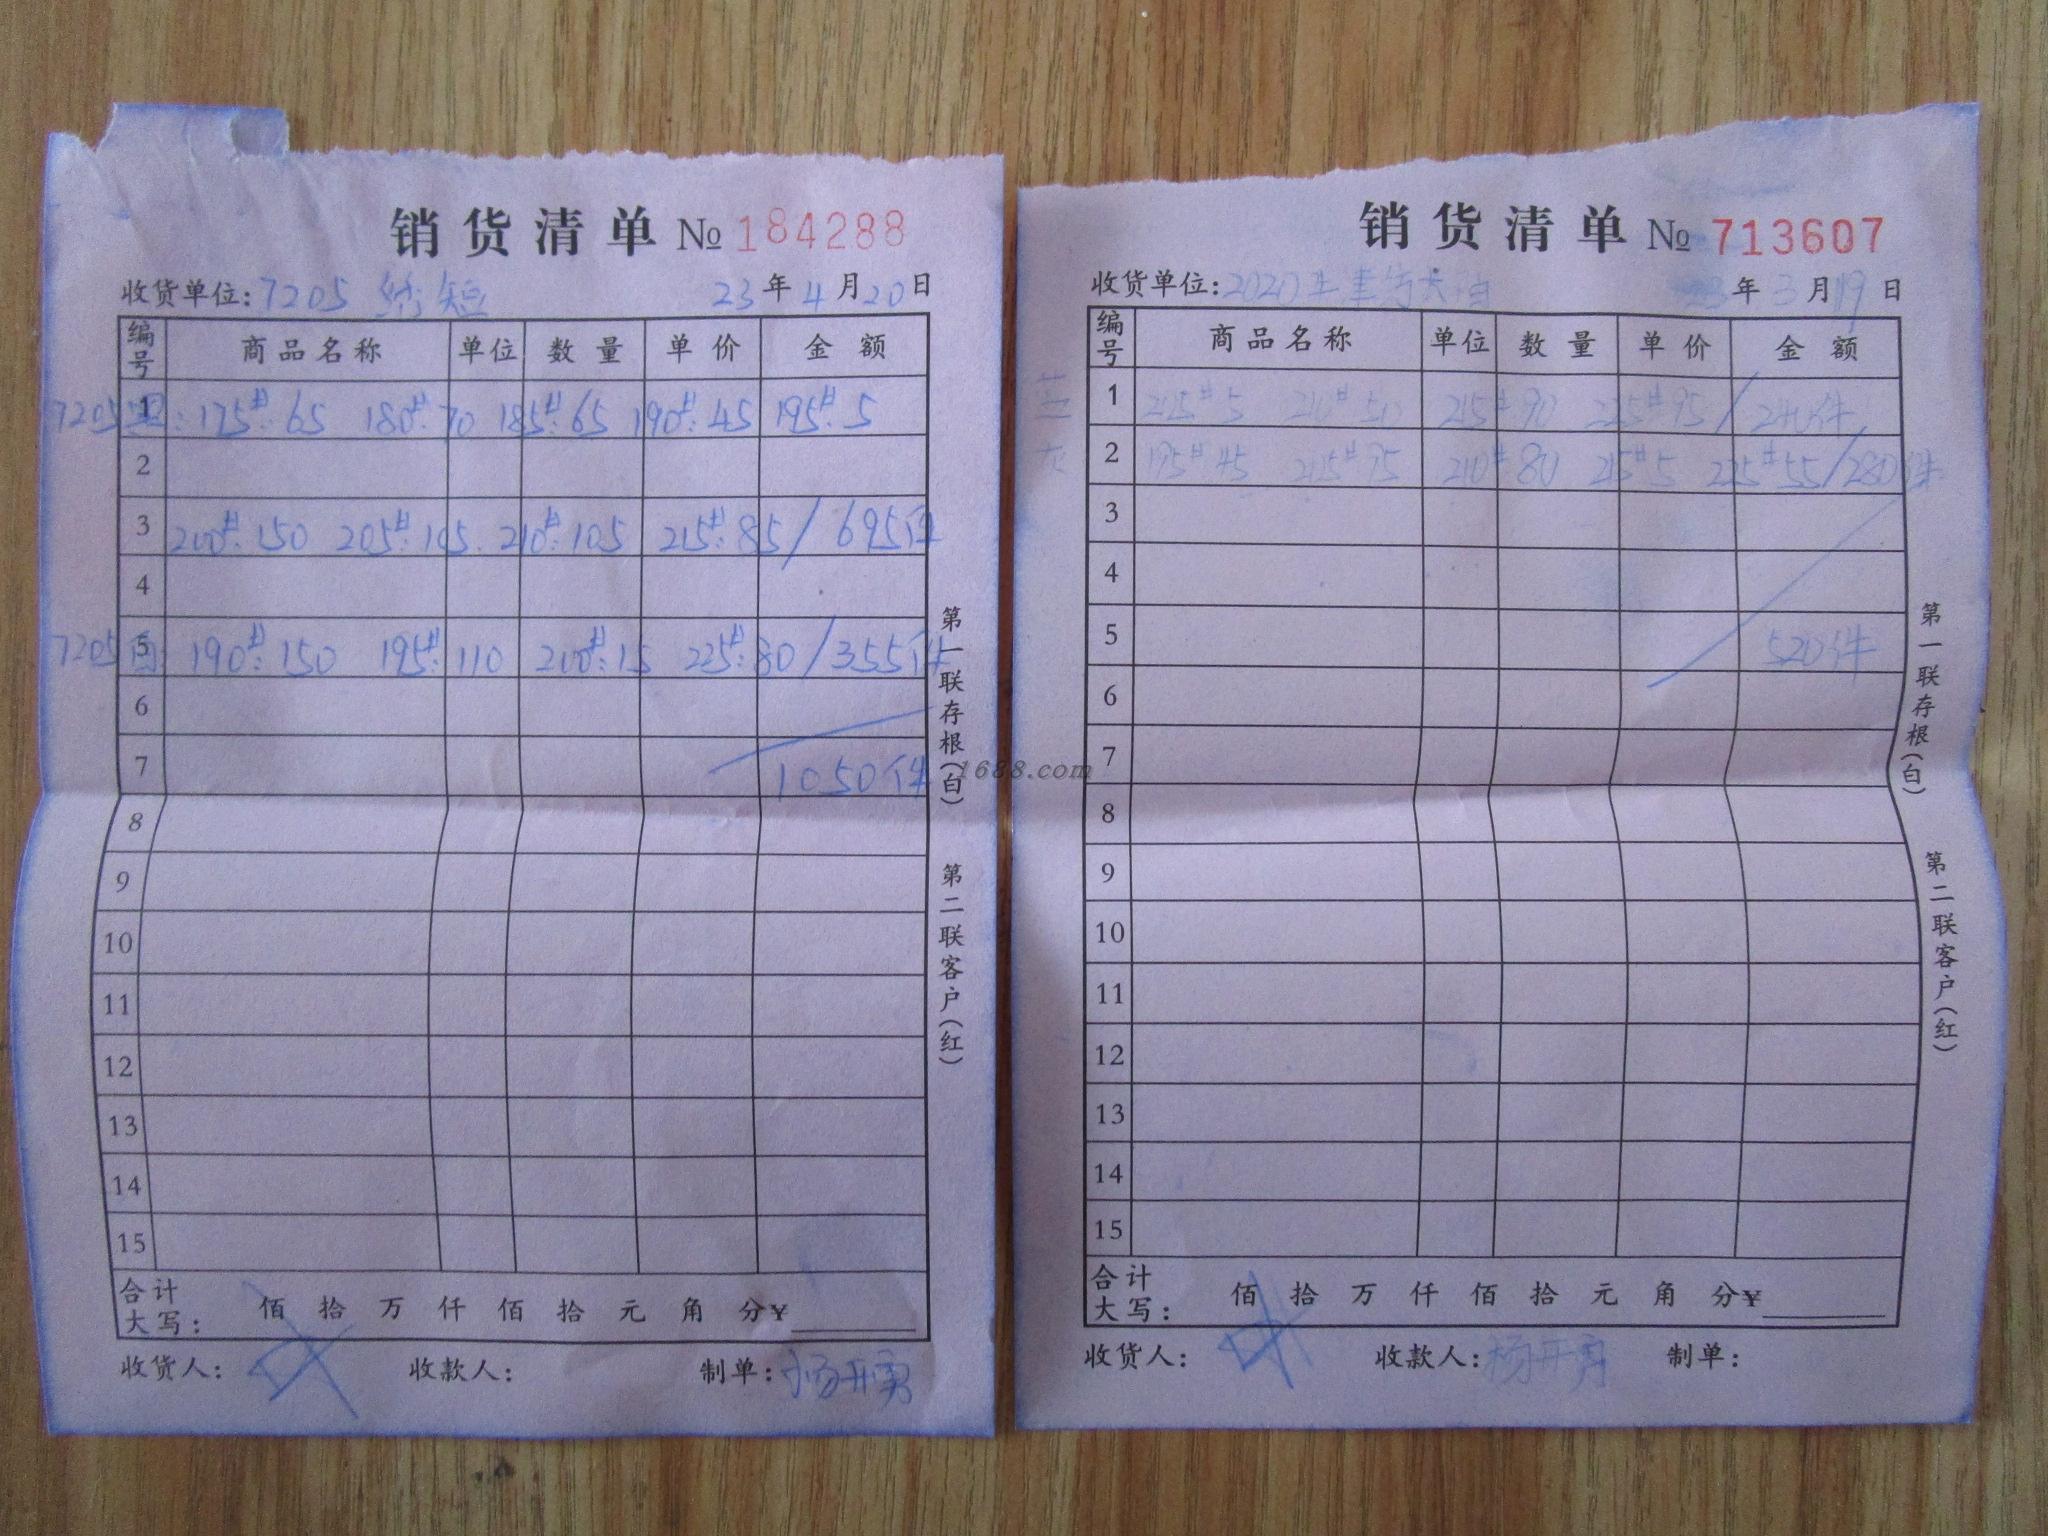 销货清单 № 184288
收货单位: 7205 23 年 4 月 20 日
编号 商品名称 单位 数量 单价 金额
7205 1 : 175#: 65 180#: 70 185#: 65 190#: 45 195#: 5
2
3 200#: 150 205#: 105. 210#: 105 215#: 85 / 695件
4
7205白 5 190#: 150 195#: 110 200#: 15 225#: 80 / 355件
6
7 1050件
8
9
10
11
12
13
14
15
合计大写: 佰 拾 万 仟 佰 拾 元 角 分¥
收货人: 收款人: 制单: 杨开勇
第一联存根(白)
第二联客户(红)
销货清单 № 713607
收货单位: 2020 23 年 3 月 19 日
编号 商品名称 单位 数量 单价 金额
1 205# 5 210# 50 215# 90 225# 95 / 240件
灰 2 195# 45 205# 95 210# 80 215# 5 225# 55 / 280件
3
4
5 520件
6
7
8
9
10
11
12
13
14
15
合计大写: 佰 拾 万 仟 佰 拾 元 角 分¥
收货人: 收款人: 杨开勇 制单:
第一联存根(白)
第二联客户(红)
1688.com